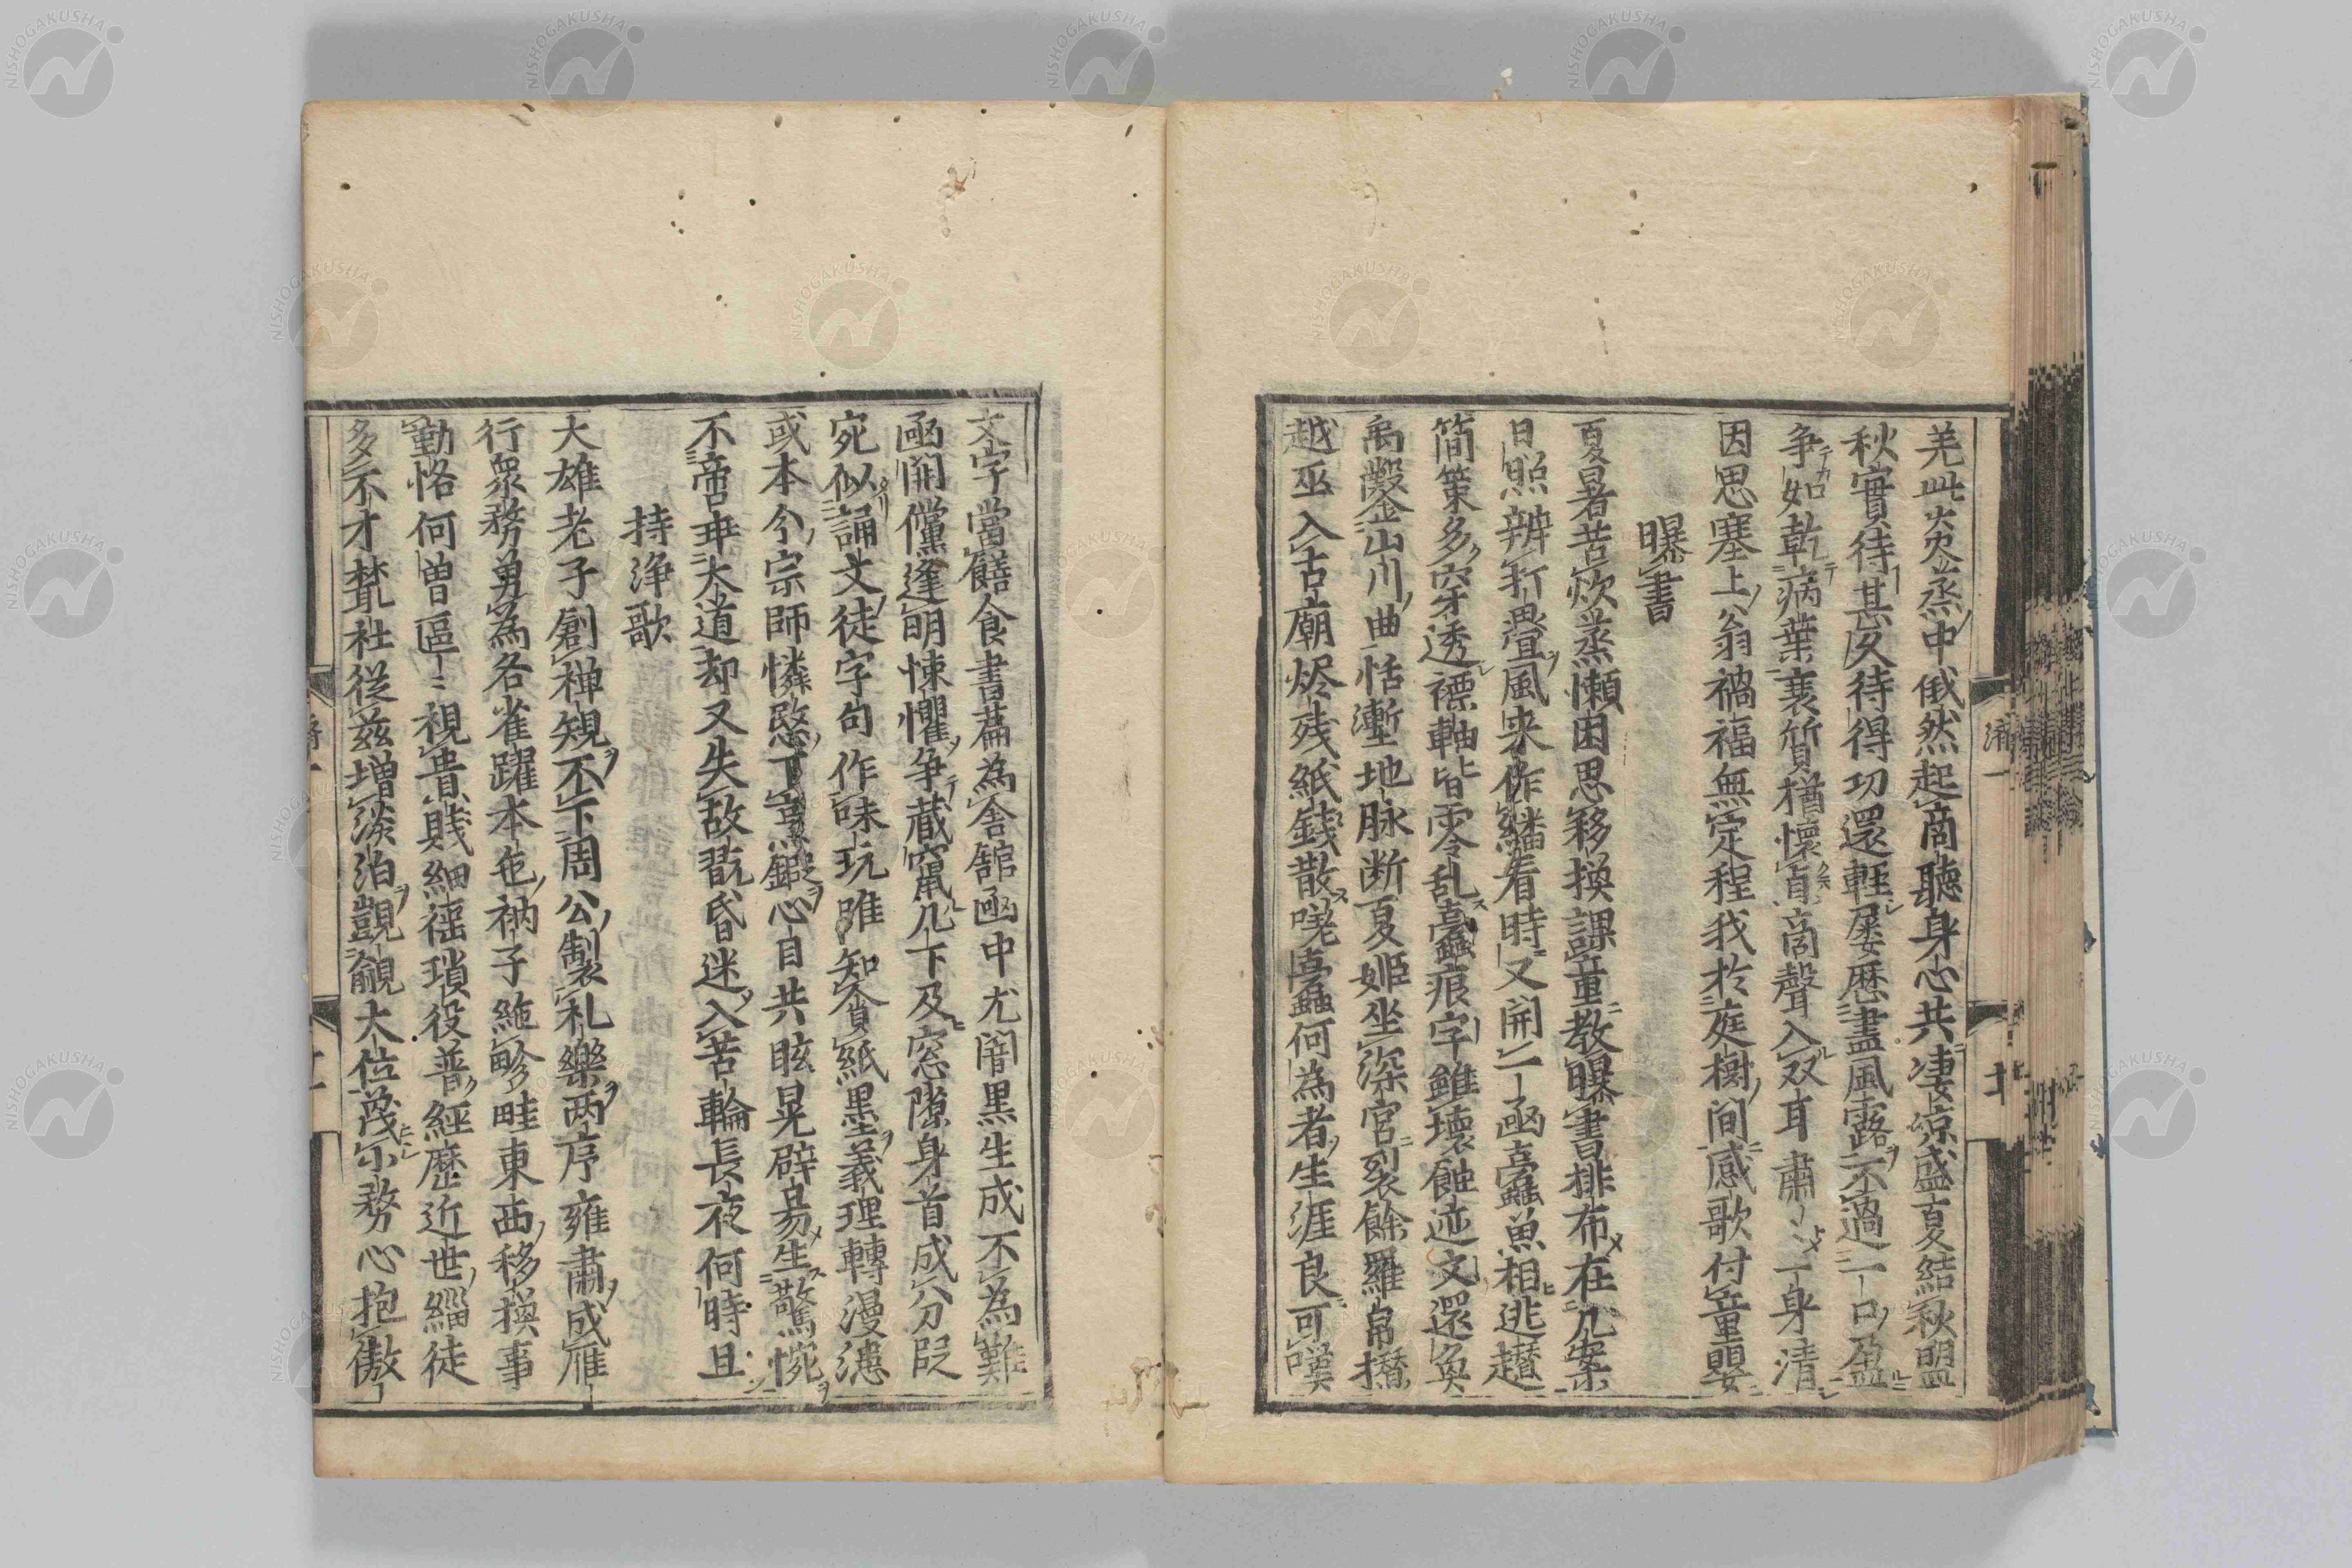 羌此炎蒸中俄然起商聽身心共凄凉盛夏結秋盟
秋實待甚久待得功還輕屢歴盡風露不過一口盈
争如乾病葉衰質猶懷貞商聲入双耳肅々一身清
因思塞上翁禍福無定程我於庭樹間感歌付童嬰
曝書
夏暑苦炊蒸懶困思移換課童教曝書排布在几案
日照辨打疊風来作繙看時又開一函蠹魚相逃趲
簡策多穿透褾軸皆零乱蠹痕字雖壊蝕迹文還奐
禹鑿山川曲恬壍地脉断夏姬坐深宮裂餘羅帛攢
越巫入古廟烬残紙錢散嘆蠹何為者生涯良可嘆
文字當饍食書篇為舎舘函中尤闇黒生成不為難
函開儻逢明悚懼争蔵竄几下及窓隙身首成分段
宛似誦文徒字句作味玩唯知食紙墨義理轉漫漶
或本今宗師憐愍丁寧鍜心目共眩晃辟易生驚惋
不啻毋大道却又失故翫昏迷入苦輪長夜何時旦
持浄歌
大雄老子創禅規不下周公製礼樂两序雍肅成雁
行衆務勇為各雀躍本色衲子絁畛畦東西移換事
勤恪何曽區々視貴賤細徭瑣役普経歴近世緇徒
多不才叢社従茲増淡泊覬覦大位蔑示務心抱傲
清一
十